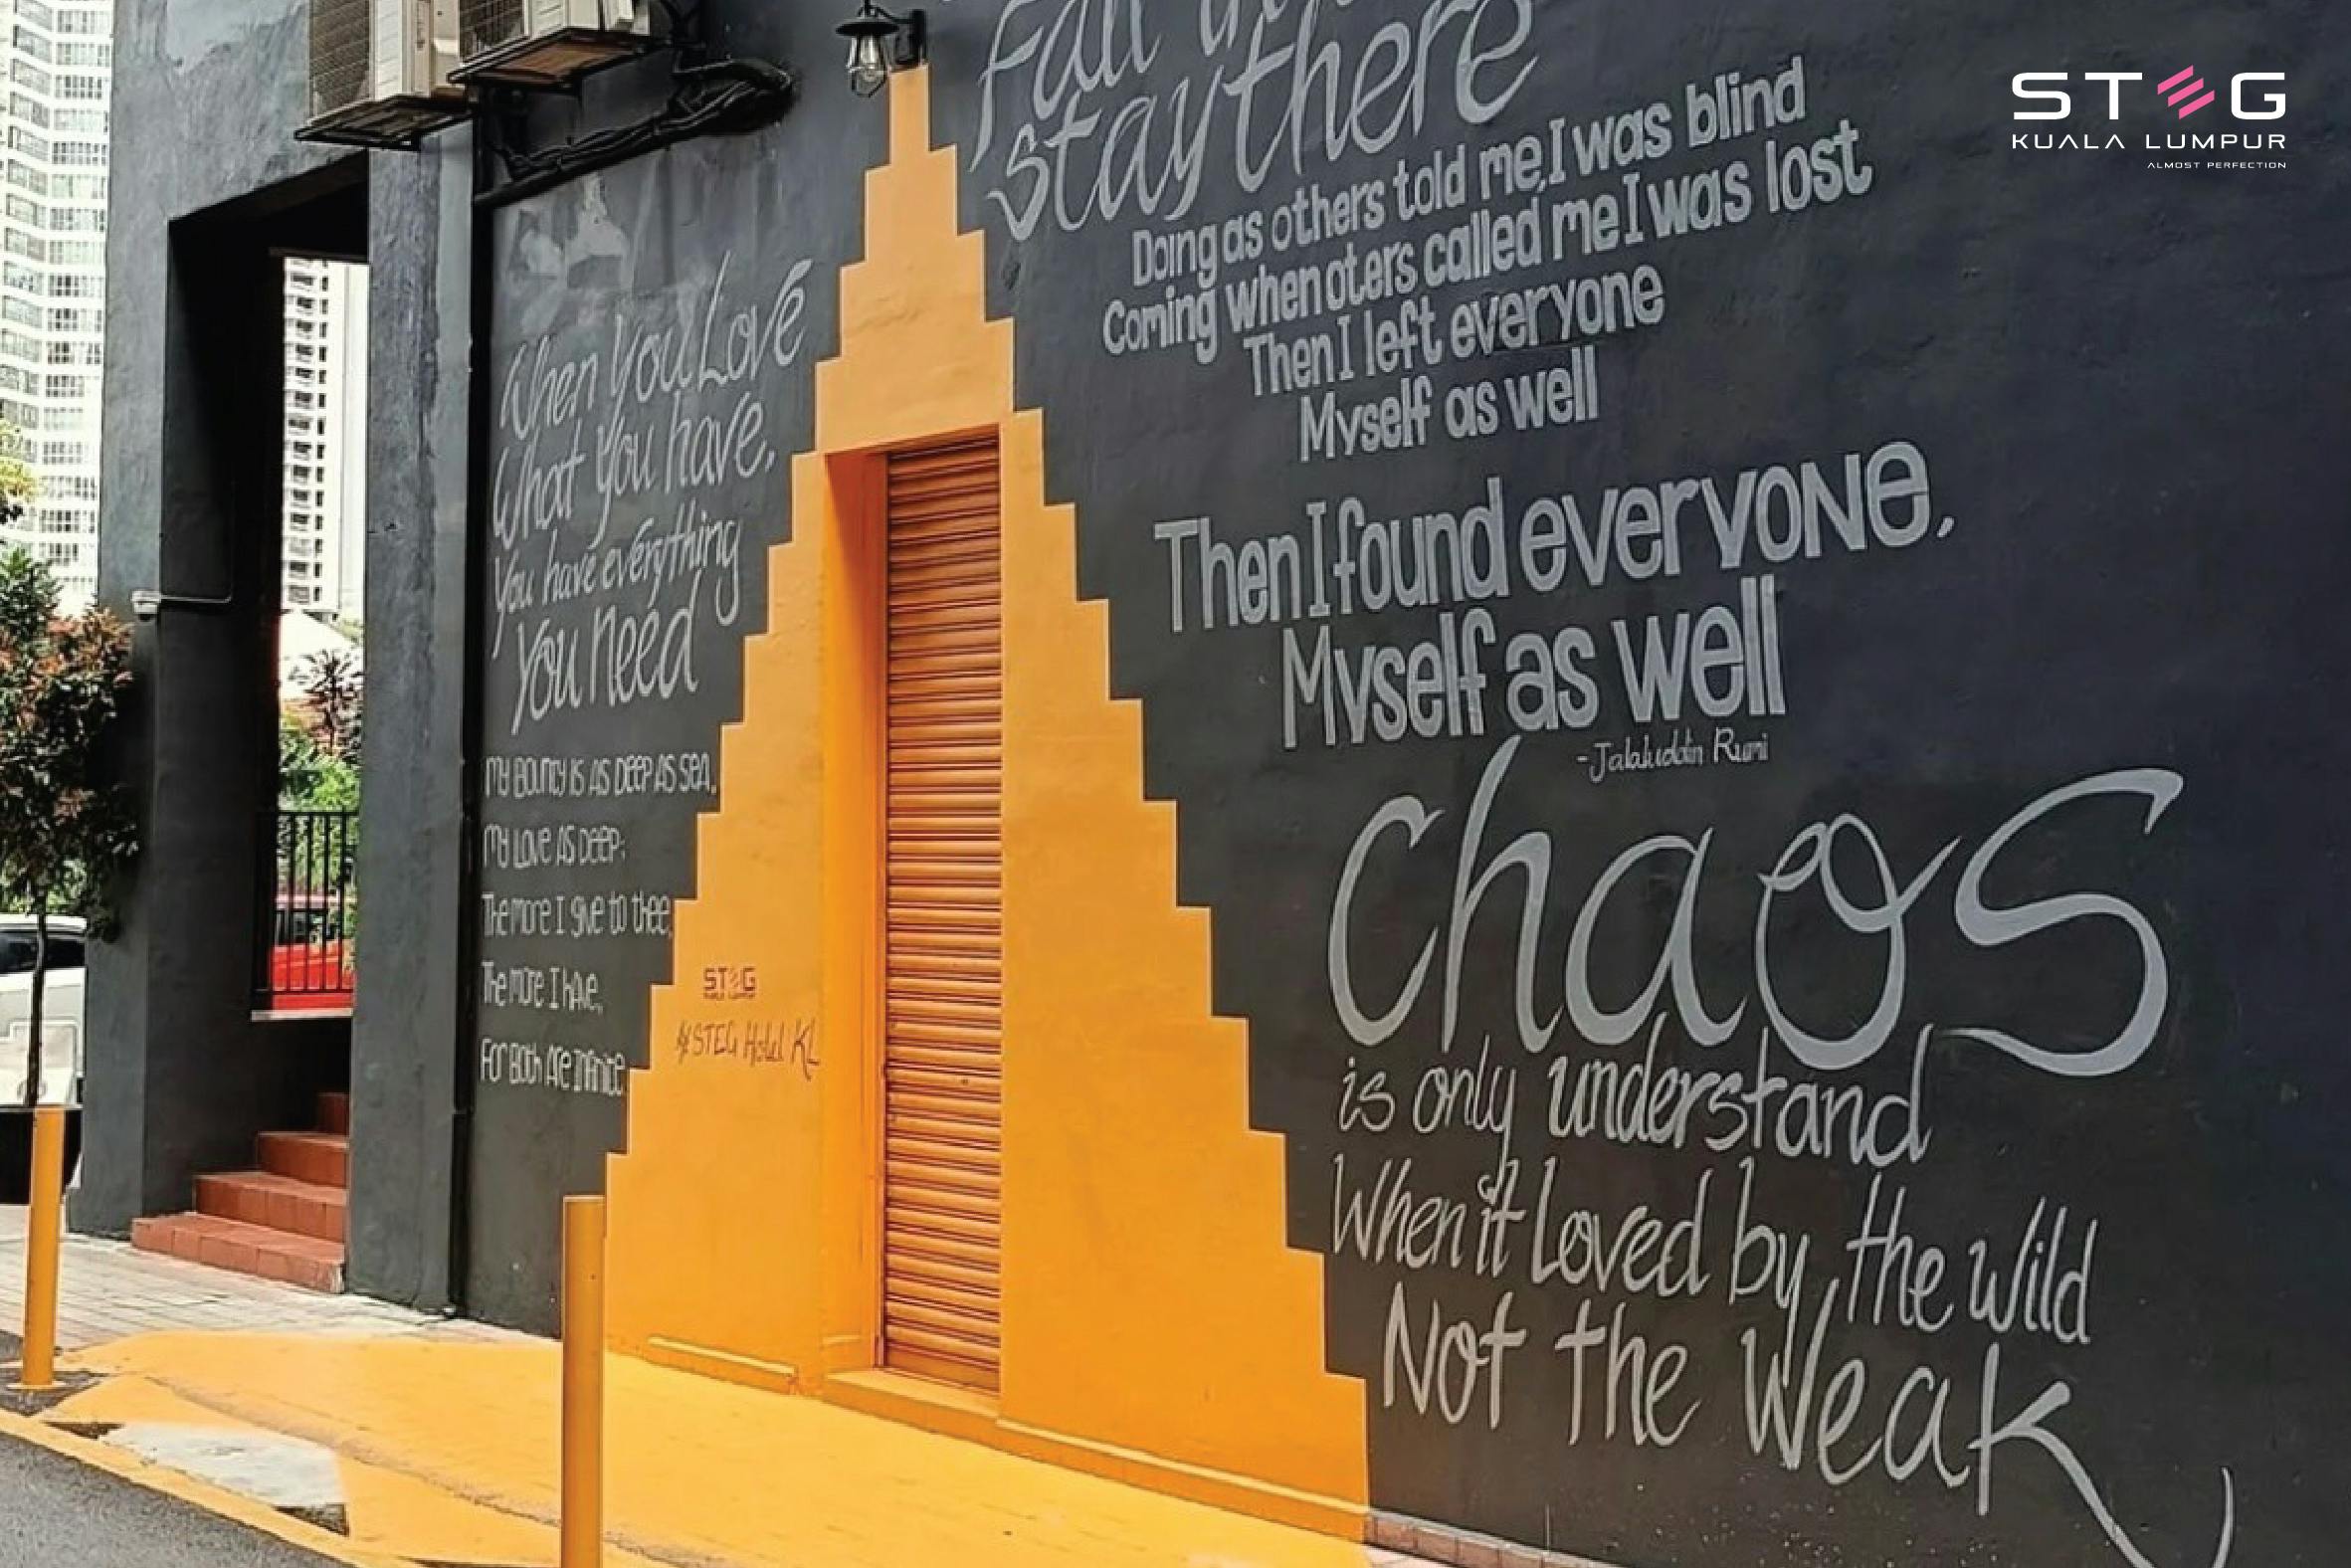 STEG
KUALA LUMPUR
ALMOST PERFECTION
Fall
stay there
Doing as others told me, I was blind
Coming when oters called me I was lost
Then I left everyone
Myself as well
Then I found everyone,
Myself as well
-Jalaluddin Rumi
When You Love
What You have,
You have everything
You need
My Bounty is as deep as sea,
My Love as deep;
The more I give to thee,
The more I have,
For Both Are Infinite
STEG
KUALA LUMPUR
#STEG Hotel KL
Chaos
is only understand
When it Loved by the Wild
Not the Weak